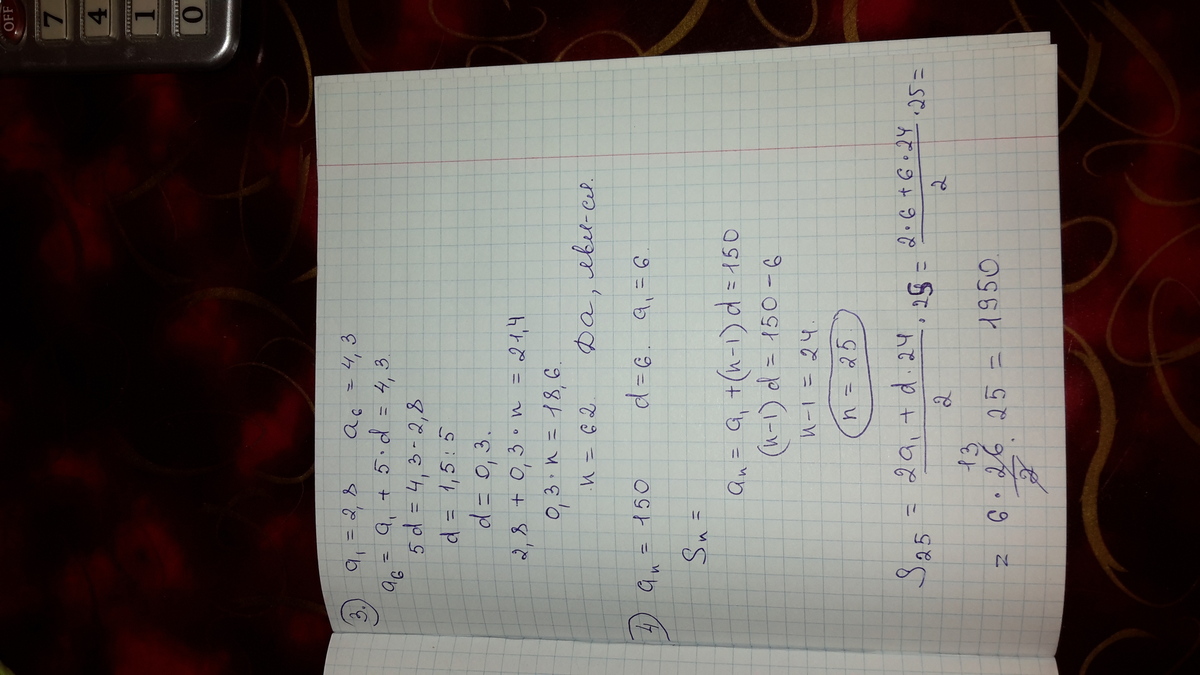 3. a₁ = 2,8 a₆ = 4,3
a₆ = a₁ + 5·d = 4,3.
5d = 4,3 - 2,8
d = 1,5 : 5
d = 0,3.
2,8 + 0,3·n = 21,4
0,3·n = 18,6.
n = 62. Да, явл-ся.
4) aₙ = 150 d = 6. a₁ = 6.
Sₙ =
aₙ = a₁ + (n-1) d = 150
(n-1) d = 150 - 6
n-1 = 24.
n = 25.
S₂₅ = (2a₁ + d·24)/2 ·25 = (2·6 + 6·24)/2 ·25 =
= 6·26/2 13 ·25 = 1950.
OFF
7
4
1
0